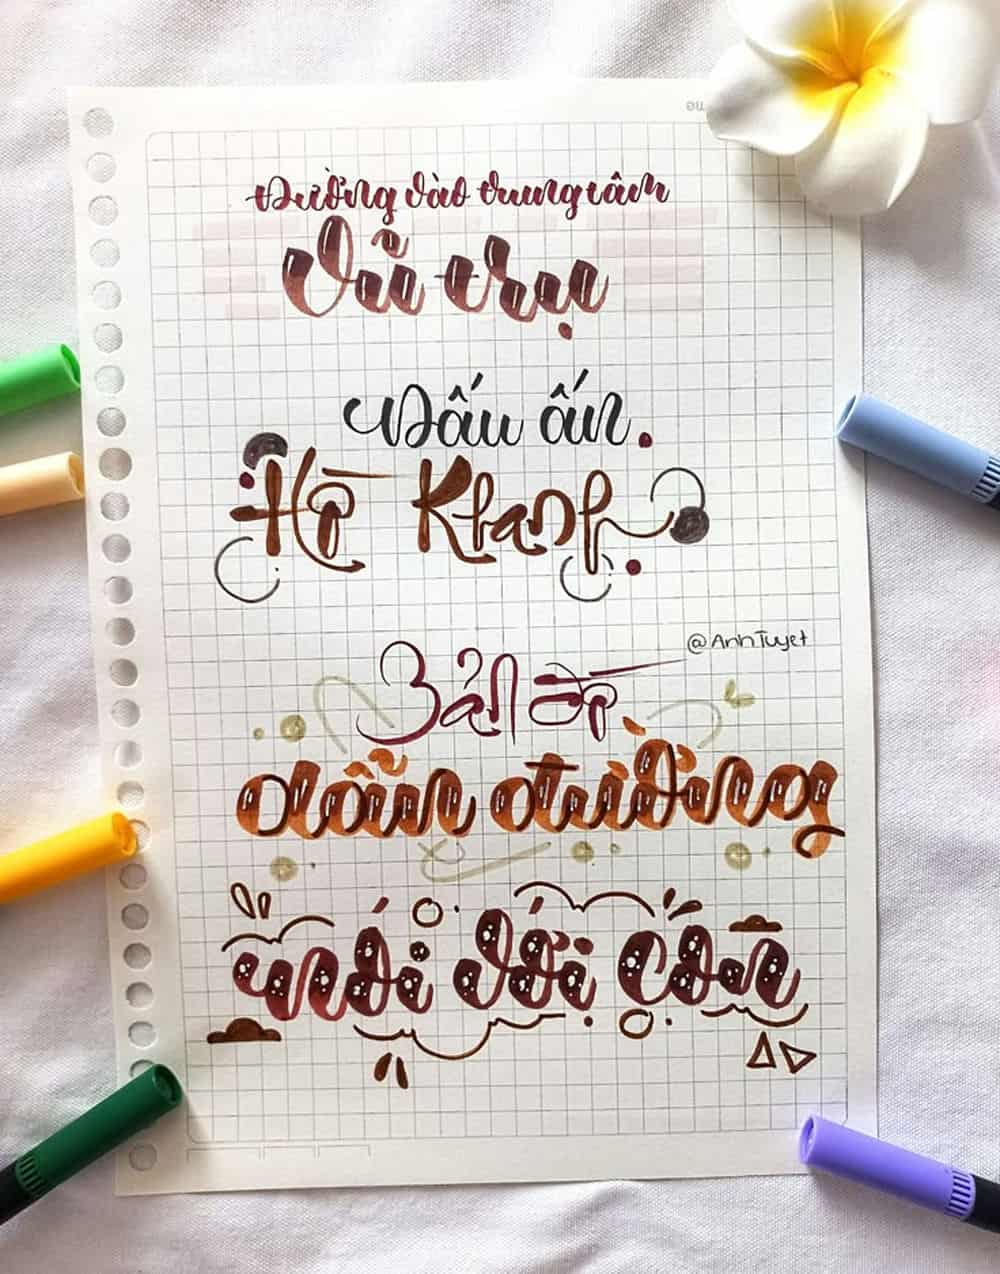 Đường vào trung tâm
Vũ trụ
Dấu ấn
Hồ Khanh
@AnhTuyet
Bản đồ
dẫn đường
nói với con